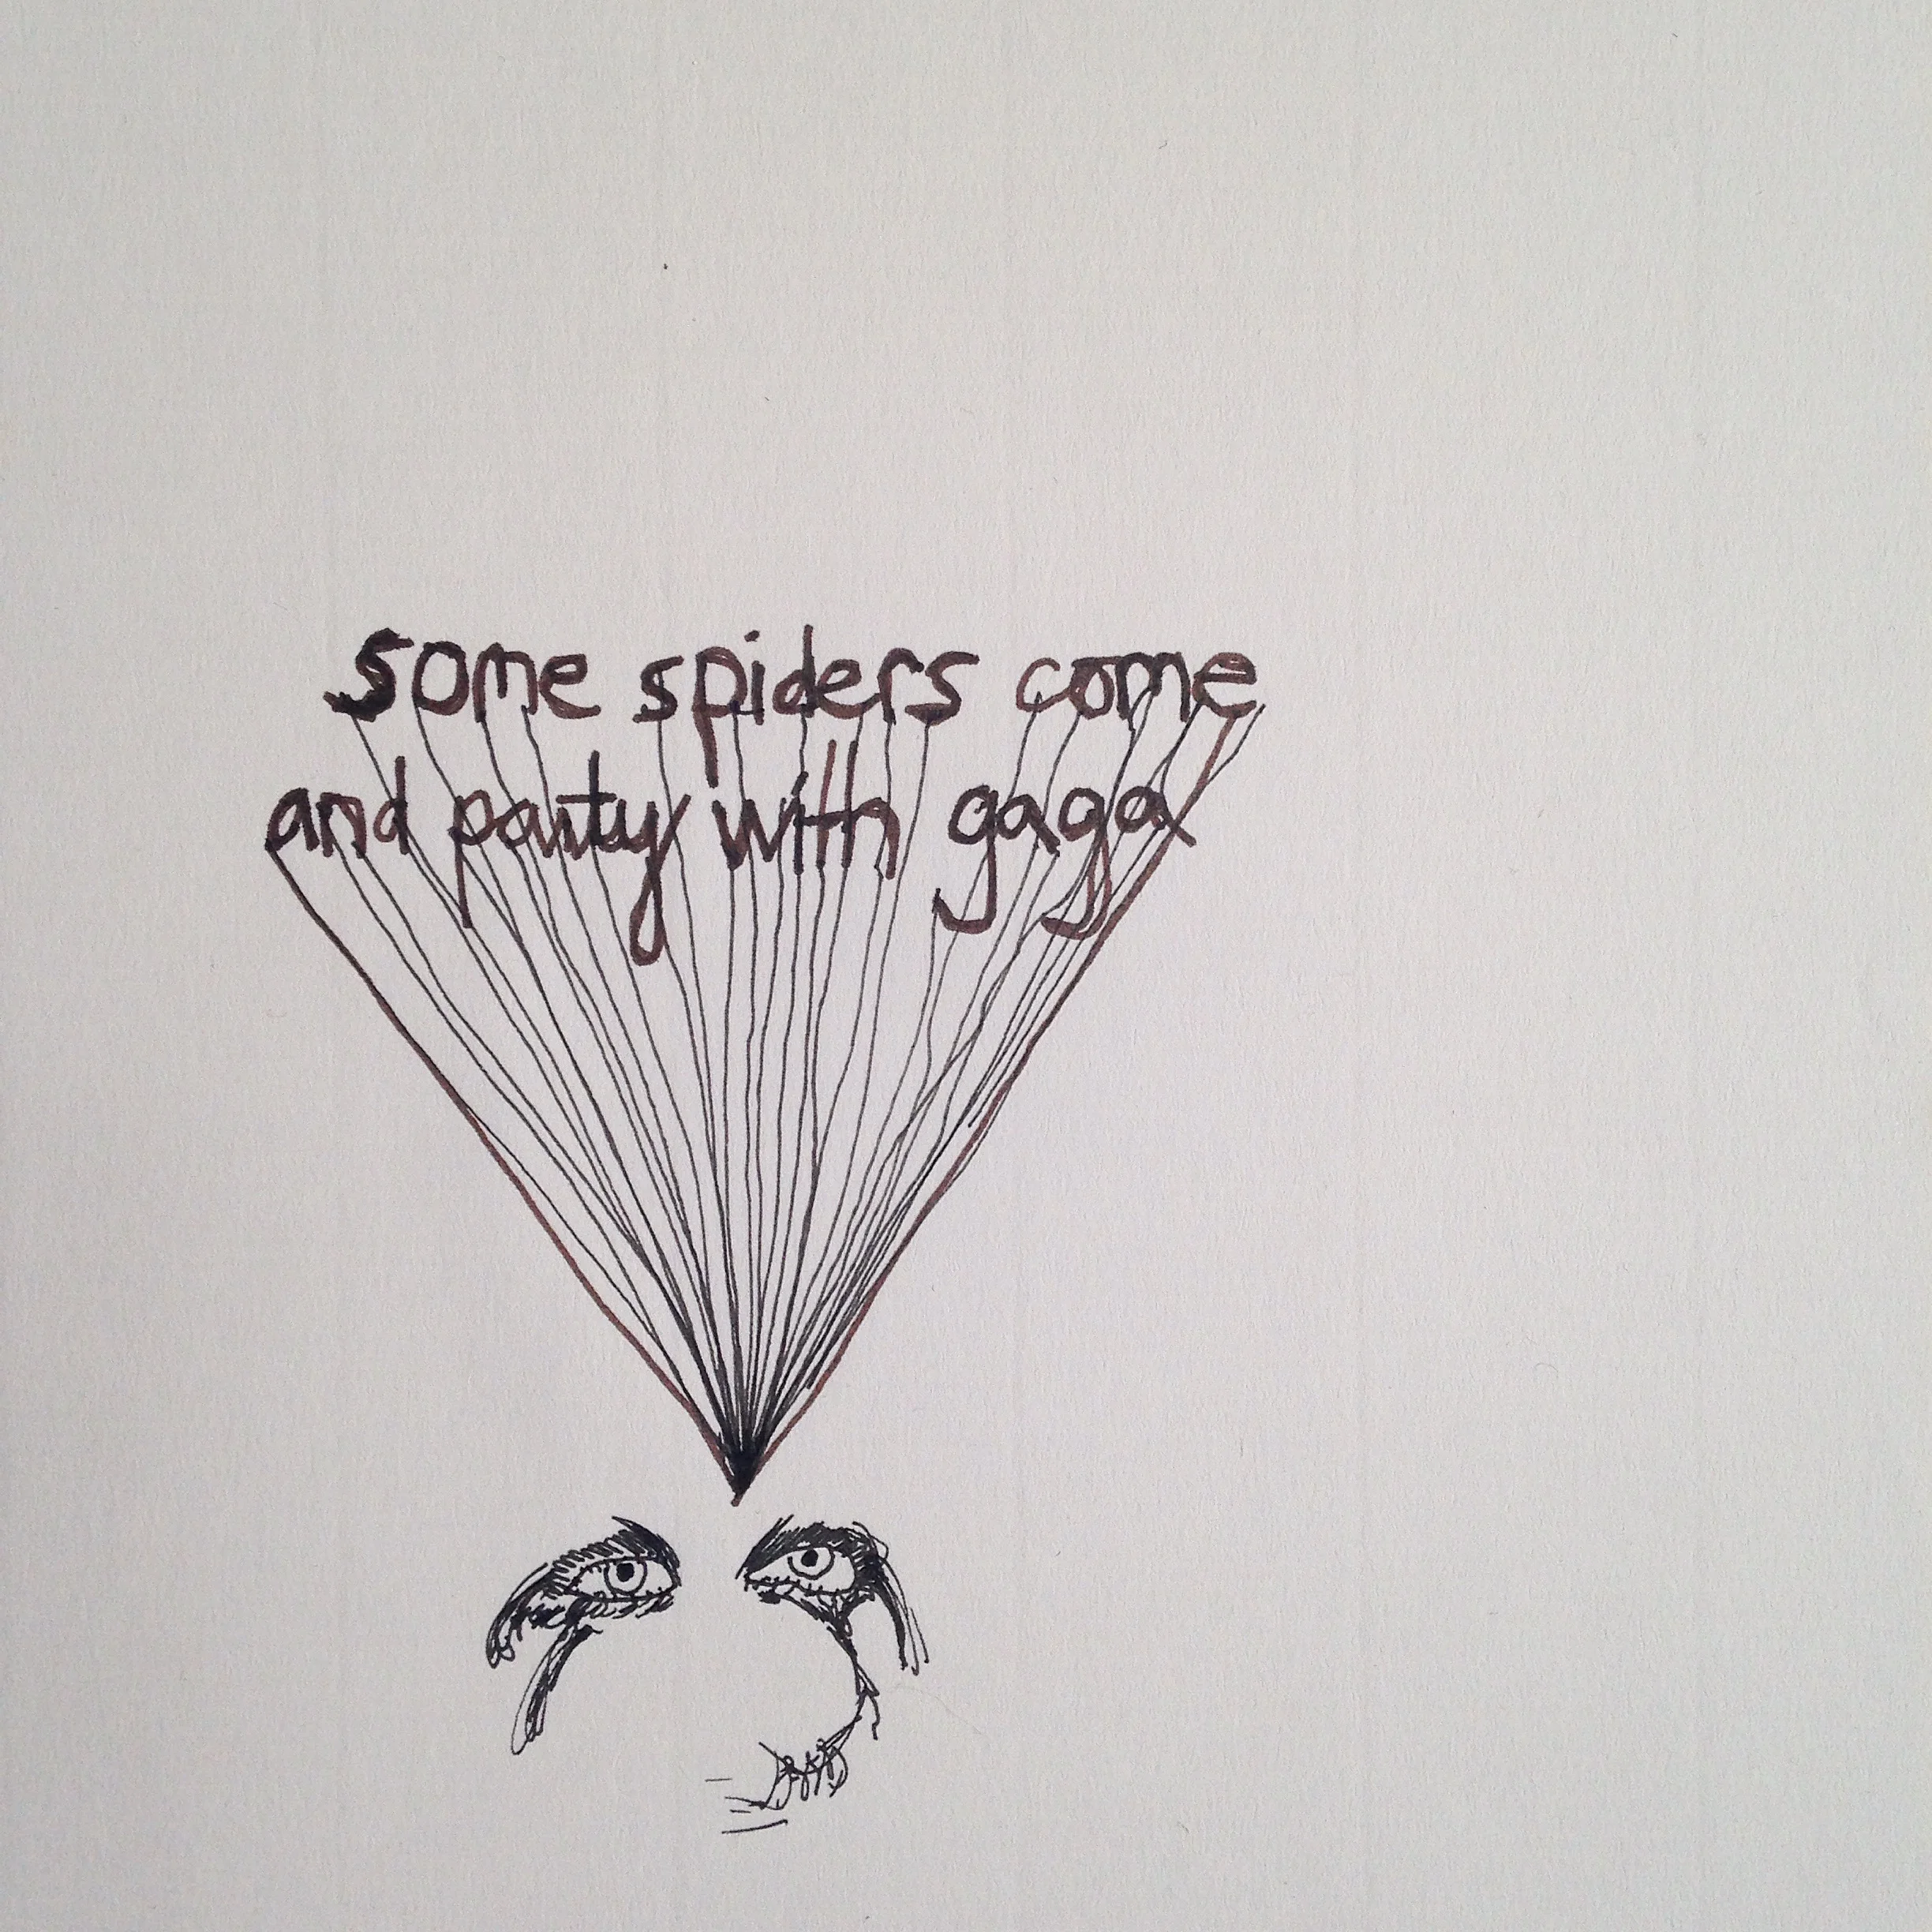 some spiders come
and party with gaga